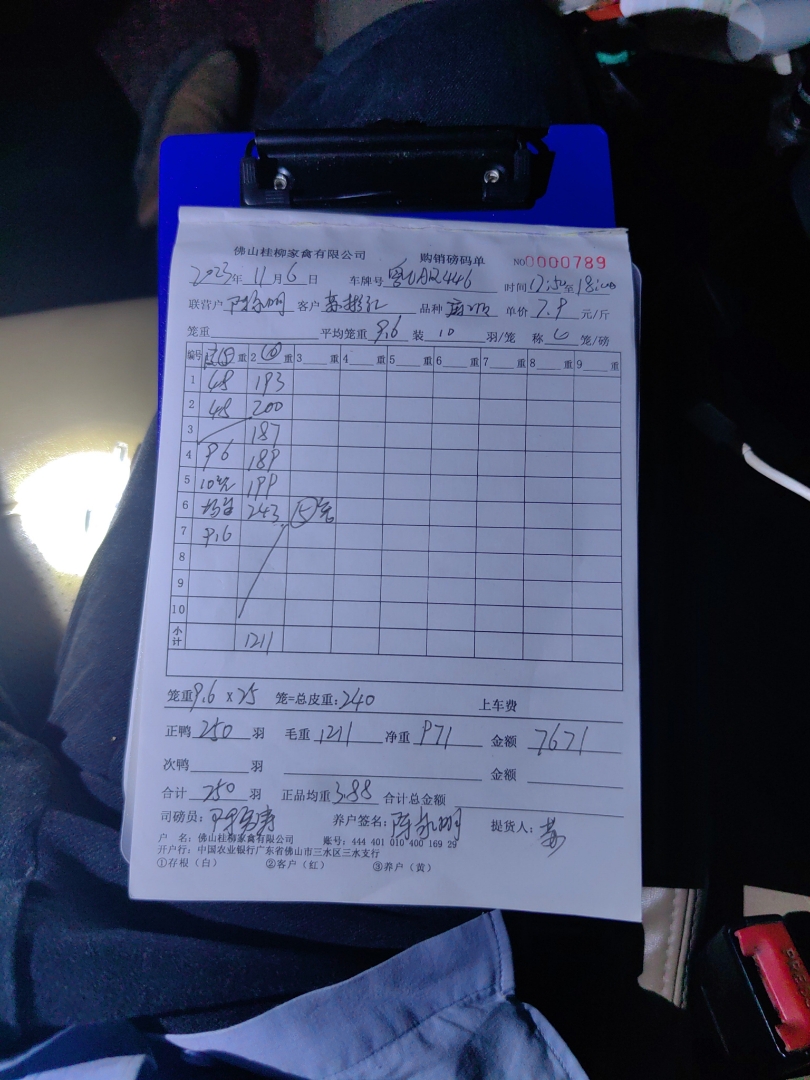 佛山桂柳家禽有限公司 购销磅码单 NO0000789
2023年 11月 6日 车牌号 446 时间17:50至18:00
联营户 客户 品种 单价 7.9 元/斤
笼重 平均笼重 9.6 装 10 羽/笼 称 笼/磅
编号 重 2 重 3 重 4 重 5 重 6 重 7 重 8 重 9 重
1 48 193
2 48 200
3 187
4 96 189
5 10笼 199
6 243 笼
7 9.6
8
9
10
小计 1211
笼重9.6 x 25 笼=总皮重:240 上车费
正鸭 250 羽 毛重 1211 净重 971 金额 7671
次鸭 羽 金额
合计 250 羽 正品均重 3.88 合计总金额
司磅员: 养户签名: 提货人:
户 名:佛山桂柳家禽有限公司 账号:444 401 010 400 169 29
开户行:中国农业银行广东省佛山市三水区三水支行
①存根(白) ②客户(红) ③养户(黄)